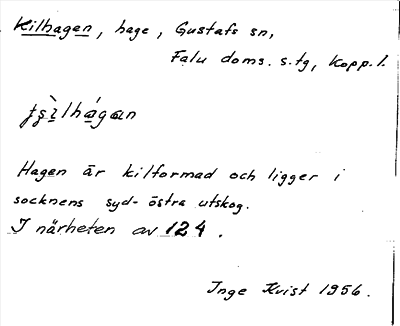 Kilhagen, hage, Gustafs sn,
Falu doms. s.tg, Kopp. l.
Hagen är kilformad och ligger i
socknens syd-östra utskog.
I närheten av 124.
Inge Kvist 1956.